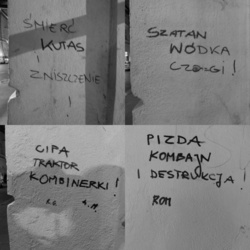 ŚMIERĆ
KUTAS
I
ZNISZCZENIE
!
SZATAN
WÓDKA
CZOŁGI !
CIPA
TRAKTOR
KOMBINERKI !
PIZDA
KOMBAJN
I DESTRUKCJA !
ROM